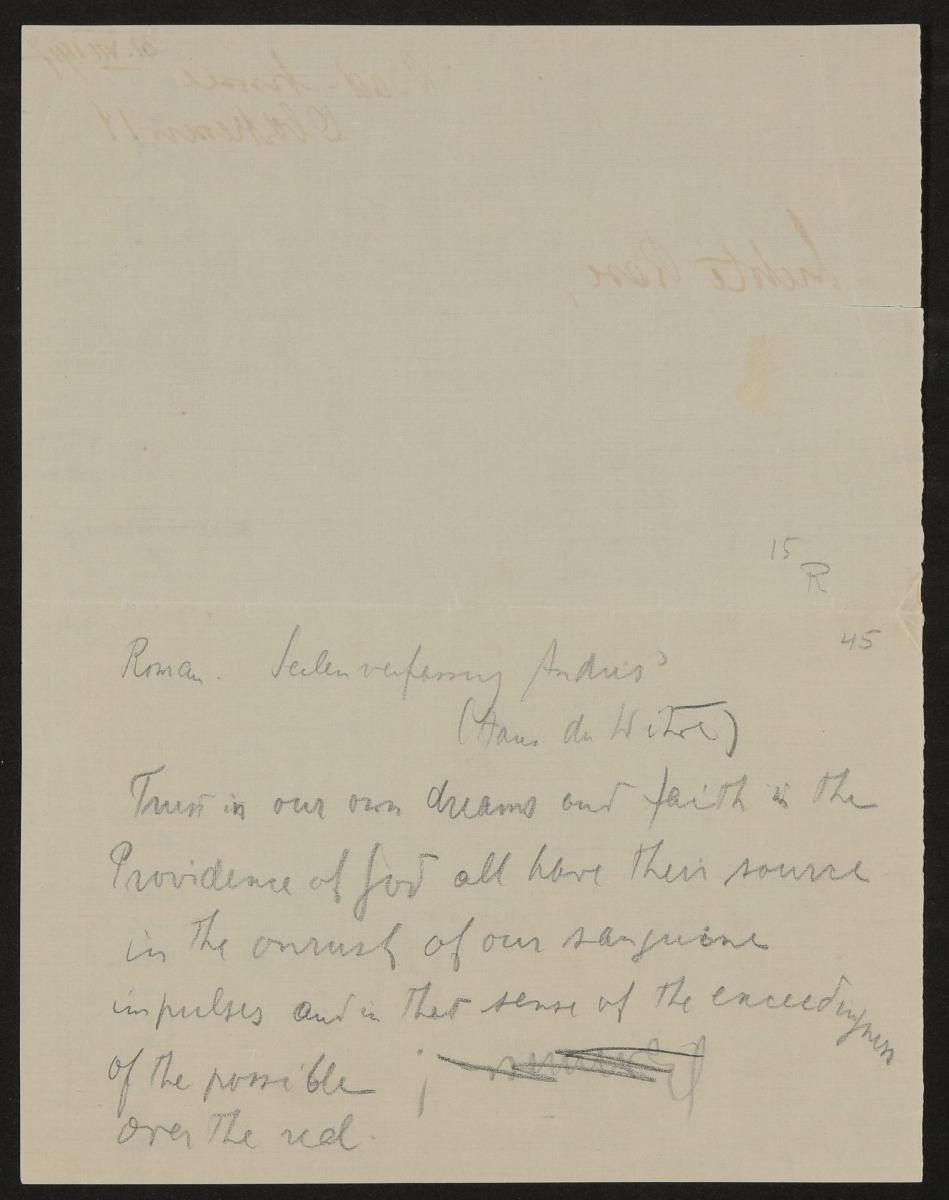 15
R
45
Roman. Seelenverfassung Andreas
(Hans du
Trust in our own dreams and faith in the
Providence of God all have their source
in the onrush of our sanguine
impulses and in that sense of the exceedingness
of the possible
over the real.